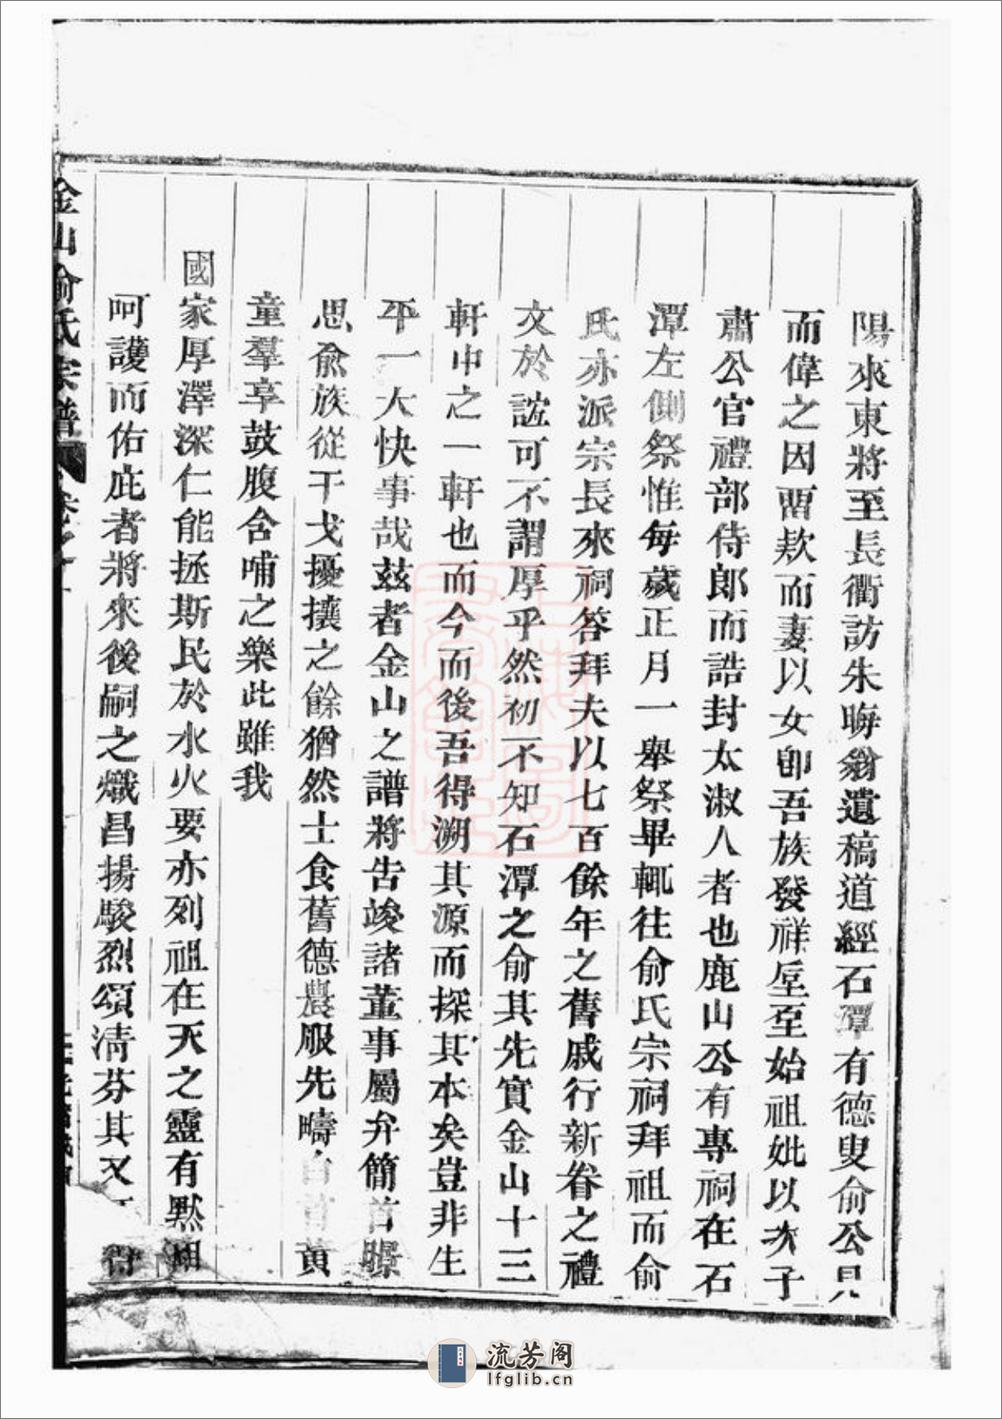 陽來東將至長衢訪朱晦翁遺稿道經石潭有德叟俞公見
而偉之因畱欵而妻以女卽吾族發祥垕至始祖妣以次子
肅公官禮部侍郎而誥封太淑人者也鹿山公有專祠在石
潭左側祭惟每歲正月一舉祭畢輒往俞氏宗祠拜祖而俞
氏亦派宗長來祠答拜夫以七百餘年之舊戚行新眷之禮
文於誼可不謂厚乎然初不知石潭之俞其先實金山十三
軒中之一軒也而今而後吾得溯其源而探其本矣豈非生
平一大快事哉茲者金山之譜將告竣諸董事屬弁簡首
思俞族從干戈擾攘之餘猶然士食舊德農服先疇黃
童羣享鼓腹含哺之樂此雖我
國家厚澤深仁能拯斯民於水火要亦列祖在天之靈有默相
呵護而佑庇者將來後嗣之熾昌揚駿烈頌淸芬其又
金山俞氏宗譜
卷之
流芳阁
lfglib.cn